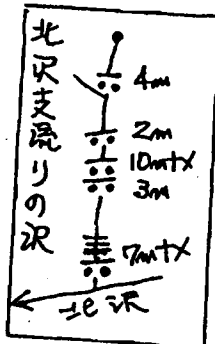 北沢支流りの沢
4m
2m
10m+X
3m
7m+X
北沢